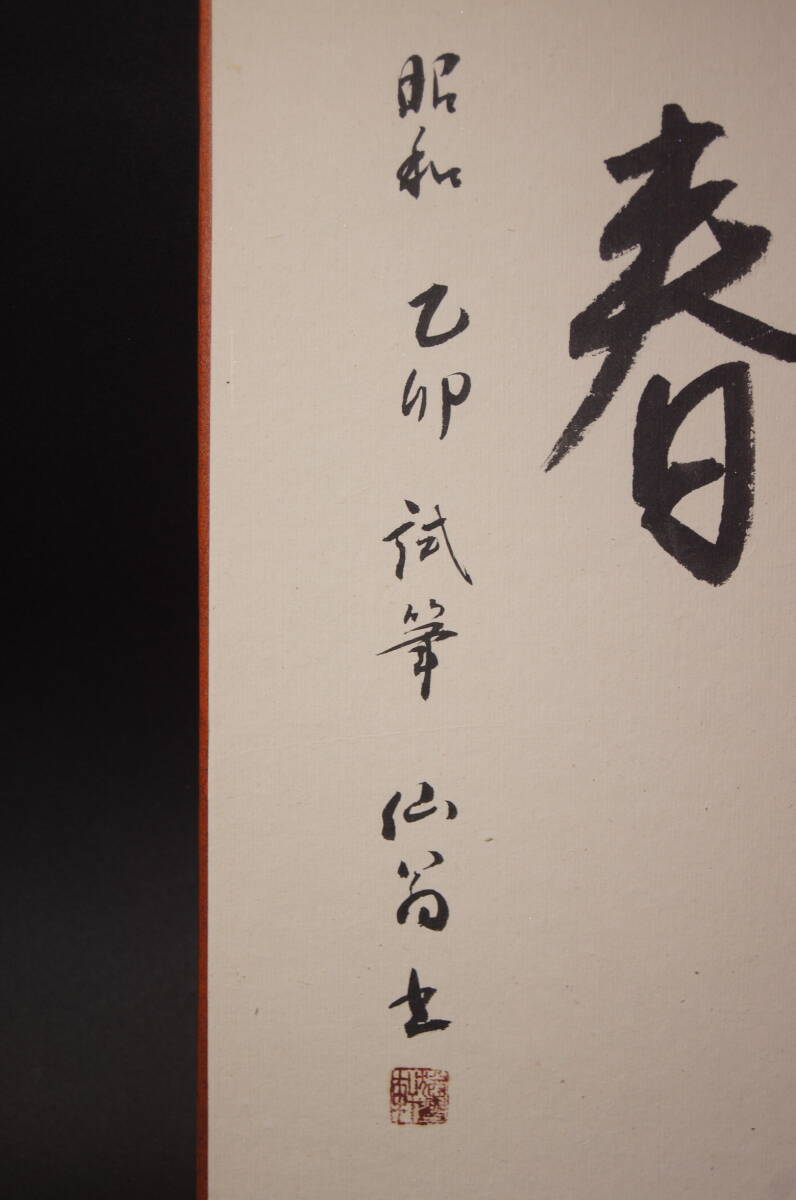 春
昭和 乙卯 試筆 仙翁書